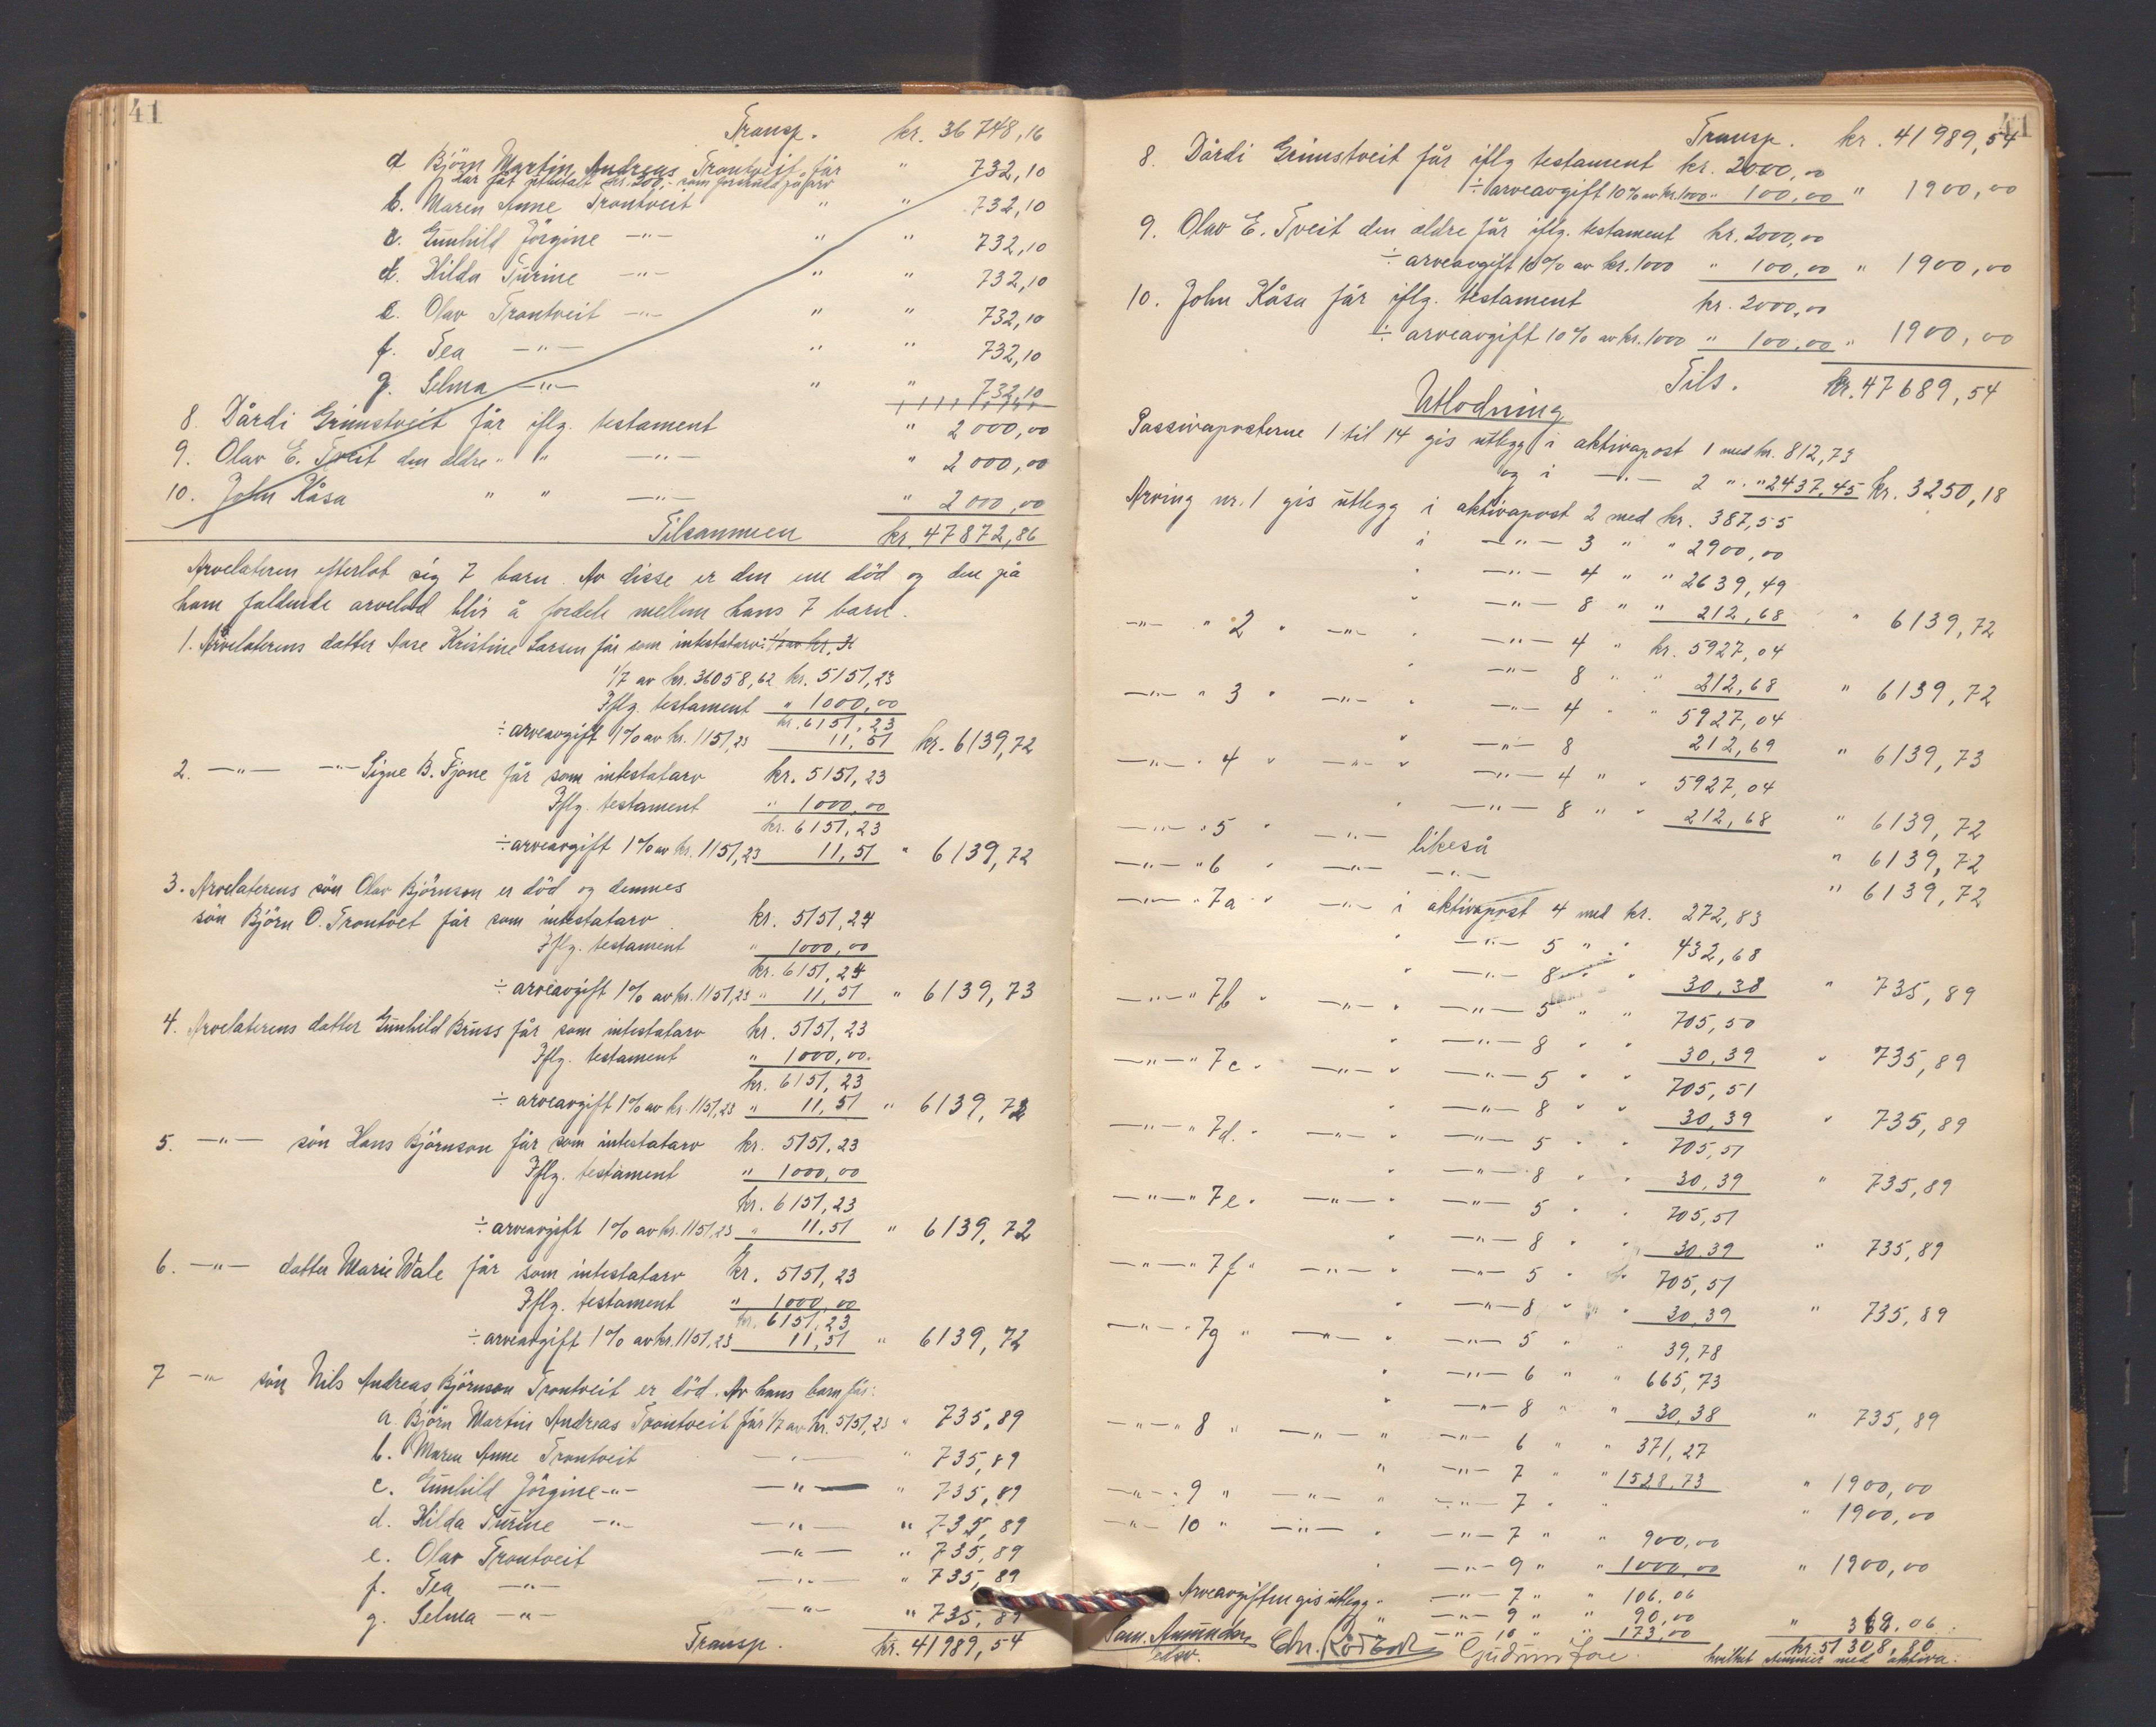 41
Transp. kr. 36 748,16
a Björn Martin Andreas Trontveit får " 732,10
har fåt utbetalt kr. 200,- som forskud på arv
b. Maren Anne Trontveit " " 732,10
c. Gunhild Jörgine —"— " " 732,10
d. Hilda Turine —"— " " 732,10
e. Olav Trontveit —"— " " 732,10
f. Tea —"— " " 732,10
g. Selma —"— " " 732,10
8. Dårdi Grimstveit får iflg. testament " 2 000,00
9. Olav E. Tveit den ældre " " —"— " 2 000,00
10. John Kåsa " " —"— " 2 000,00
Tilsammen kr. 47872,86
Arvelateren efterlot sig 7 barn. Av disse er den ene död og den på
ham faldende arvelod blir å fordele mellem hans 7 barn.
1. Arvelaterens datter Aase Kristine Larsen får som intestatarv: 1/7 av kr. 3
1/7 av kr. 36058,62 kr. 5151,23
Iflg. testament " 1000,00
kr. 6151,23
÷ arveavgift 1% av kr. 1151,23 11,51 kr. 6139,72
2. —"— —"— Signe B. Fjone får som intestatarv kr. 5151,23
Iflg. testament " 1000,00
kr. 6151,23
÷ arveavgift 1% av kr. 1151,23 11,51 " 6139,72
3. Arvelaterens sön Olav Björnson er död og dennes
sön Björn O. Trontveit får som intestatarv kr. 5151,24
Iflg. testament " 1000,00
kr. 6151,24
÷ arveavgift 1% av kr. 1151,23 " 11,51 " 6139,73
4. Arvelaterens datter Gunhild Bruss får som intestatarv kr. 5151,23
Iflg. testament " 1000,00
kr. 6151,23
÷ arveavgift 1% av kr. 1151,23 " 11,51 " 6139,72
5. —"— sön Hans Björnson får som intestatarv kr. 5151,23
Iflg. testament " 1000,00
kr. 6151,23
÷ arveavgift 1% av kr. 1151,23 " 11,51 " 6139,72
6. —"— datter Marie Wale får som intestatarv kr. 5151,23
Iflg. testament " 1000,00
kr. 6151,23
÷ arveavgift 1% av kr. 1151,23 11,51 " 6139,72
7 —"— sön Nils Andreas Björnson Trontveit er död. Av hans barn får:
a. Björn Martin Andreas Trontveit får 1/7 av kr. 5151,23 " 735,89
b. Maren Anne Trontveit —"— " 735,89
c. Gunhild Jörgine —"— —"— " 735,89
d. Hilda Turine —"— —"— " 735,89
e. Olav Trontveit —"— " 735,89
f. Tea —"— —"— " 735,89
g. Selma —"— —"— " 735,89
Transp. kr. 41989,54
41
Transp. kr. 41989,54
8. Dårdi Grimstveit får iflg testament kr. 2000,00
÷ arveavgift 10% av kr. 1000 " 100,00 " 1900,00
9. Olav E. Tveit den ældre får iflg. testament kr. 2000,00
÷ arveavgift 10% av kr. 1000 " 100,00 " 1900,00
10. John Kåsa får iflg. testament kr. 2000,00
÷ arveavgift 10% av kr. 1000 " 100,00 " 1900,00
Tils. kr. 47689,54
Utlodning
Passivaposterne 1 til 14 gis utlegg i aktivapost 1 med kr. 812,73
og i —"— 2 " " 2437,45 kr. 3250,18
Arving nr. 1 gis utlegg i aktivapost 2 med kr. 387,55
i —"— 3 " " 2900,00
" —"— 4 " " 2639,49
" —"— 8 " " 212,68 " 6139,72
—"— " 2 " —"— " —"— 4 " kr. 5927,04
" —"— 8 " " 212,68 " 6139,72
—"— " 3 " —"— " —"— 4 " " 5927,04
" —"— 8 212,69 " 6139,73
—"— " 4 " —"— " —"— 4 " " 5927,04
" —"— 8 " " 212,68 " 6139,72
—"— " 5 " —"— likeså " 6139,72
—"— " 6 " —"— —"— " 6139,72
—"— " 7a " —"— i aktivapost 4 med kr. 272,83
" —"— 5 " " 432,68
" —"— 8 " " 30,38 " 735,89
—"— " 7b " —"— " —"— 5 " " 705,50
" —"— 8 " " 30,39 " 735,89
—"— " 7c " —"— " —"— 5 " " 705,51
" —"— 8 " " 30,39 " 735,89
—"— " 7d. " —"— " —"— 5 " " 705,51
" —"— 8 " " 30,39 " 735,89
—"— " 7e " —"— " —"— 5 " " 705,51
" —"— 8 " " 30,39 " 735,89
—"— " 7f " —"— " —"— 5 " " 705,51
" —"— 8 " " 30,39 " 735,89
—"— " 7g " —"— " —"— 5 " " 39,78
" —"— 6 " " 665,73
" —"— 8 " " 30,38 " 735,89
—"— " 8 " —"— " —"— 6 " " 371,27
" —"— 7 " " 1528,73 " 1900,00
—"— " 9 " —"— " —"— 7 " " 1900,00
—"— 10 " —"— " —"— 7 " " 900,00
" —"— 9 " " 1000,00 " 1900,00
Arveavgiften gis utlegg " —"— 7 " " 106,06
" —"— 9 " " 90,00
—"— 10 " " 173,00 " 369,06
kr. 51308,80
hvilket stemmer med aktiva.